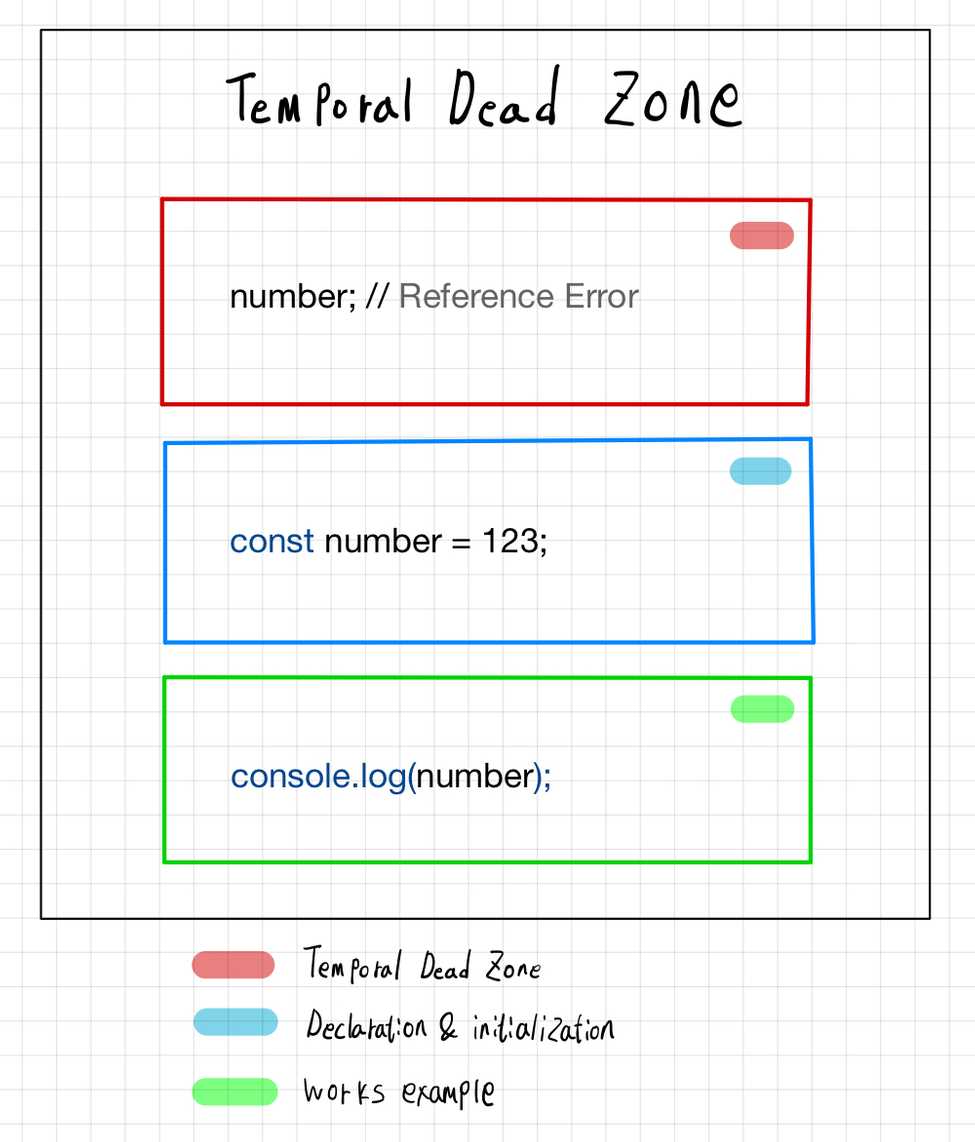 Temporal Dead Zone
number; // Reference Error
const number = 123;
console.log(number);
Temporal Dead Zone
Declaration & initialization
works example